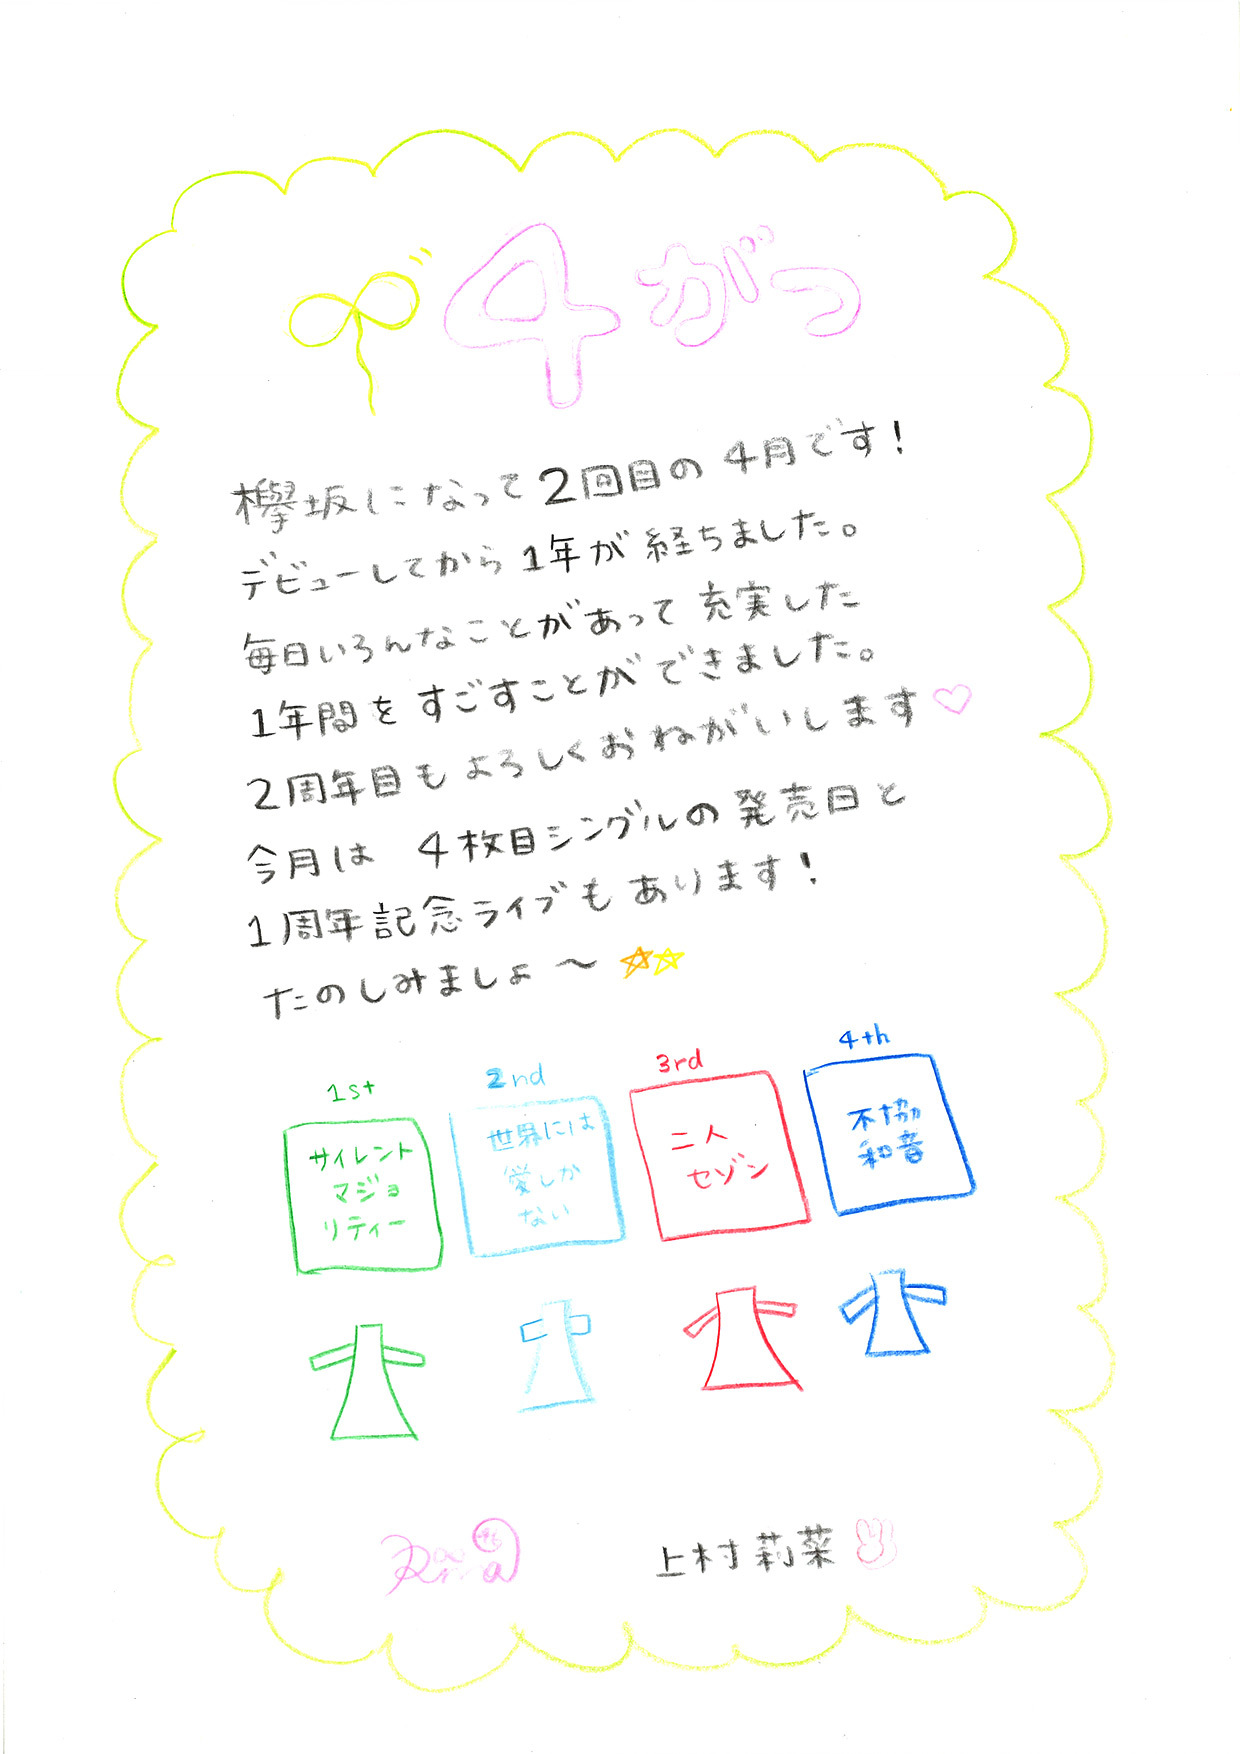 4がつ
欅坂になって2回目の4月です!
デビューしてから1年が経ちました。
毎日いろんなことがあって充実した
1年間をすごすことができました。
2周年目もよろしくおねがいします♡
今月は 4枚目シングルの発売日と
1周年記念ライブもあります!
たのしみましょ〜☆☆
1st
サイレント
マジョ
リティー
2nd
世界には
愛しか
ない
3rd
二人
セゾン
4th
不協
和音
Rina
上村莉菜